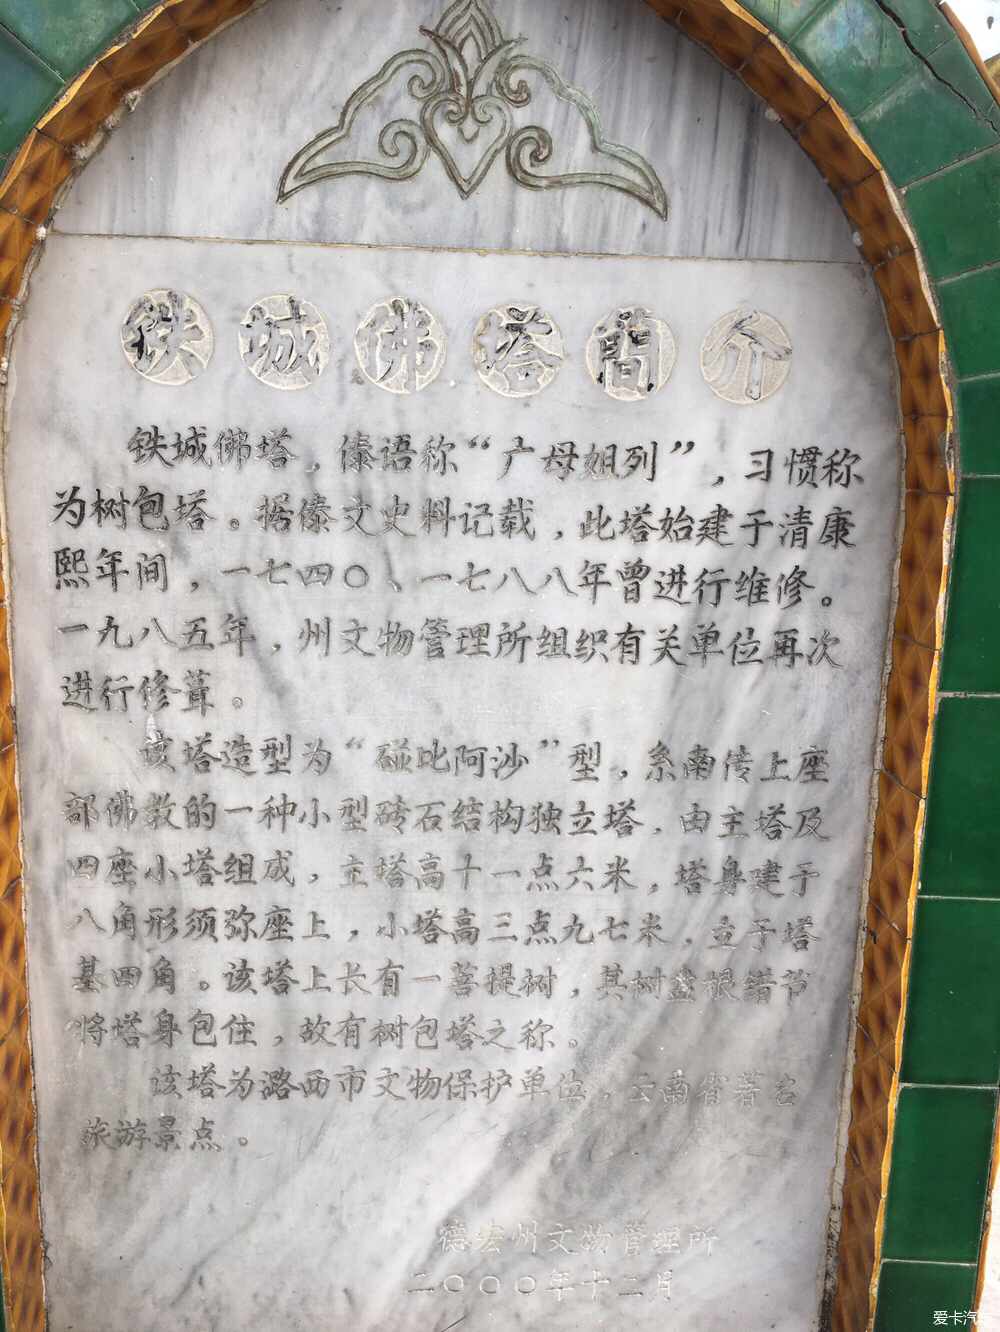 铁城佛塔簡介
铁城佛塔，傣语称“广母姐列”，习惯称
为树包塔。据傣文史料记载，此塔始建于清康
熙年间，一七四〇、一七八八年曾进行维修。
一九八五年，州文物管理所组织有关单位再次
进行修葺。
该塔造型为“碰比阿沙”型，系南传上座
部佛教的一种小型砖石结构独立塔，由主塔及
四座小塔组成，主塔高十一点六米，塔身建于
八角形须弥座上，小塔高三点九七米，立于塔
基四角。该塔上长有一菩提树，其树盘根错节
将塔身包住，故有树包塔之称。
该塔为潞西市文物保护单位，云南省著名
旅游景点。
德宏州文物管理所
二〇〇〇年十二月
爱卡汽车